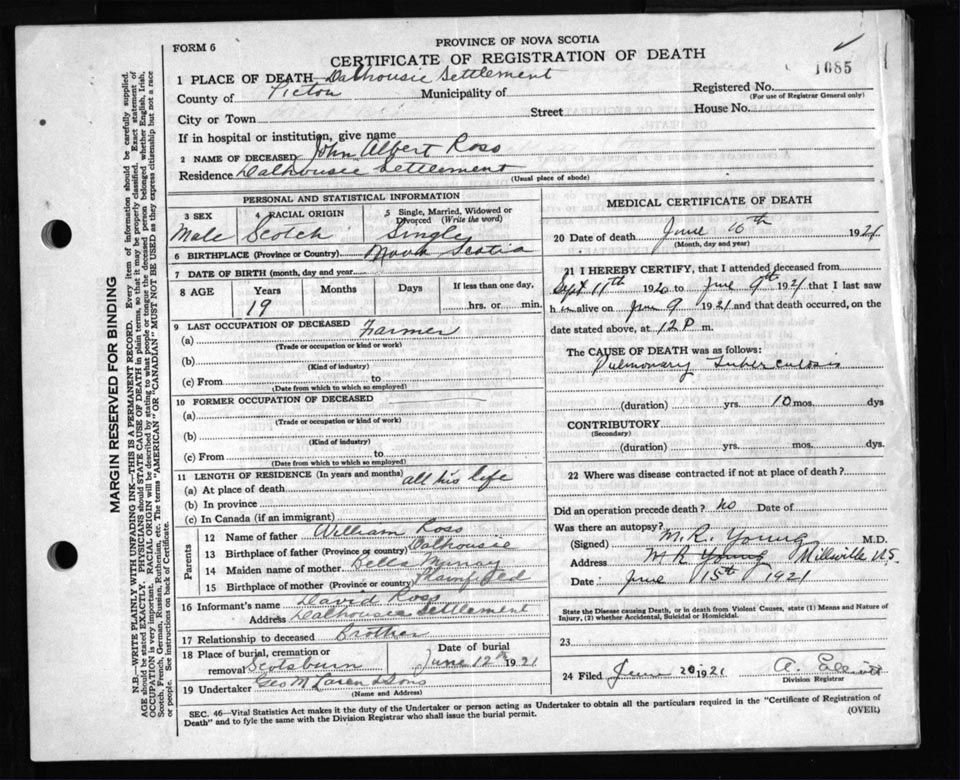 FORM 6
PROVINCE OF NOVA SCOTIA
CERTIFICATE OF REGISTRATION OF DEATH
1085
1 PLACE OF DEATH Dalhousie Settlement
County of Pictou Municipality of
Registered No.
(For use of Registrar General only)
City or Town Street House No.
If in hospital or institution, give name
2 NAME OF DECEASED John Albert Ross
Residence Dalhousie Settlement
(Usual place of abode)
PERSONAL AND STATISTICAL INFORMATION
3 SEX 4 RACIAL ORIGIN 5 Single, Married, Widowed or Divorced (Write the word)
Male Scotch Single
6 BIRTHPLACE (Province or Country) Nova Scotia
7 DATE OF BIRTH (month, day and year)
8 AGE Years Months Days If less than one day,
19 hrs. or min.
9 LAST OCCUPATION OF DECEASED
(a) Farmer
(Trade or occupation or kind or work)
(b)
(Kind of industry)
(c) From to
(Date from which to which so employed)
10 FORMER OCCUPATION OF DECEASED
(a)
(Trade or occupation or kind of work)
(b)
(Kind of industry)
(c) From to
(Date from which to which so employed)
11 LENGTH OF RESIDENCE (In years and months)
(a) At place of death all his life
(b) In province
(c) In Canada (if an immigrant)
Parents
12 Name of father William Ross
13 Birthplace of father (Province or country) Dalhousie
14 Maiden name of mother Bella Murray
15 Birthplace of mother (Province or country) Plainfield
16 Informant's name David Ross
Address Dalhousie Settlement
17 Relationship to deceased Brother
18 Place of burial, cremation or removal Scotsburn
Date of burial June 12th 1921
19 Undertaker Geo M Laren & Sons
(Name and Address)
MEDICAL CERTIFICATE OF DEATH
20 Date of death June 10th 1921
(Month, day and year)
21 I HEREBY CERTIFY, that I attended deceased from
Sept 11th 1920 to June 9th 1921 that I last saw
h im alive on June 9 1921 and that death occurred, on
date stated above, at 12 P m.
The CAUSE OF DEATH was as follows:
Pulmonary Tuberculosis
(duration) yrs. 10 mos. dys
CONTRIBUTORY
(Secondary)
(duration) yrs. mos. dys.
22 Where was disease contracted if not at place of death?
Did an operation precede death? no Date of
Was there an autopsy?
(Signed) M. R. Young M.D.
Address M R Young Millville N.S.
Date June 15th 1921
State the Disease causing Death, or in death from Violent Causes, state (1) Means and Nature of
Injury, (2) whether Accidental, Suicidal or Homicidal.
23
24 Filed June 20 1921 A.
Division Registrar
SEC. 46—Vital Statistics Act makes it the duty of the Undertaker or person acting as Undertaker to obtain all the particulars required in the "Certificate of Registration of
Death" and to fyle the same with the Division Registrar who shall issue the burial permit.
(OVER)
MARGIN RESERVED FOR BINDING
N.B.—WRITE PLAINLY WITH UNFADING INK—THIS IS A PERMANENT RECORD. Every item of information should be carefully supplied.
AGE should be stated EXACTLY. PHYSICIANS should STATE CAUSE OF DEATH in plain terms, so that it may be properly classified. Exact statement of
OCCUPATION is very important. RACIAL ORIGIN will be described by stating to what people or tongue the deceased person belonged whether English, Irish,
Scotch, French, German, Russian, Ruthenian, etc. The terms "AMERICAN" OR "CANADIAN" MUST NOT BE USED as they express citizenship but not a race
or people. See instructions on back of Certificate.